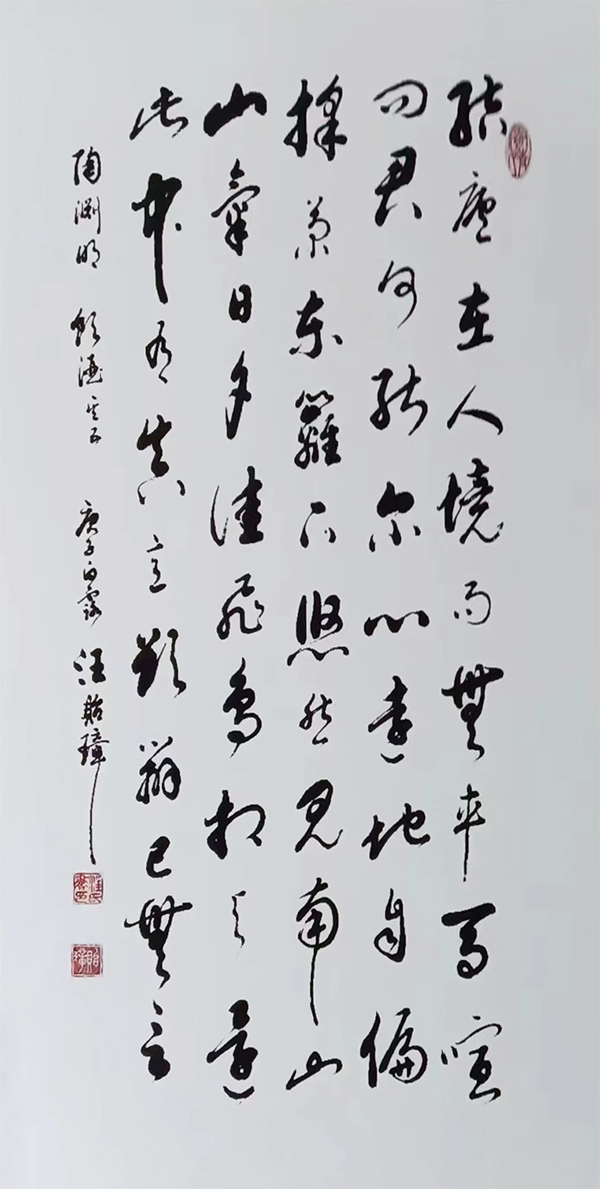 結廬在人境而無車馬喧
問君何能尔心遠地自偏
採菊東籬下悠然見南山
山氣日夕佳飛鳥相與還
此中有真意欲辨已無言
陶淵明 飲酒其五 庚子白露 汪貽璋